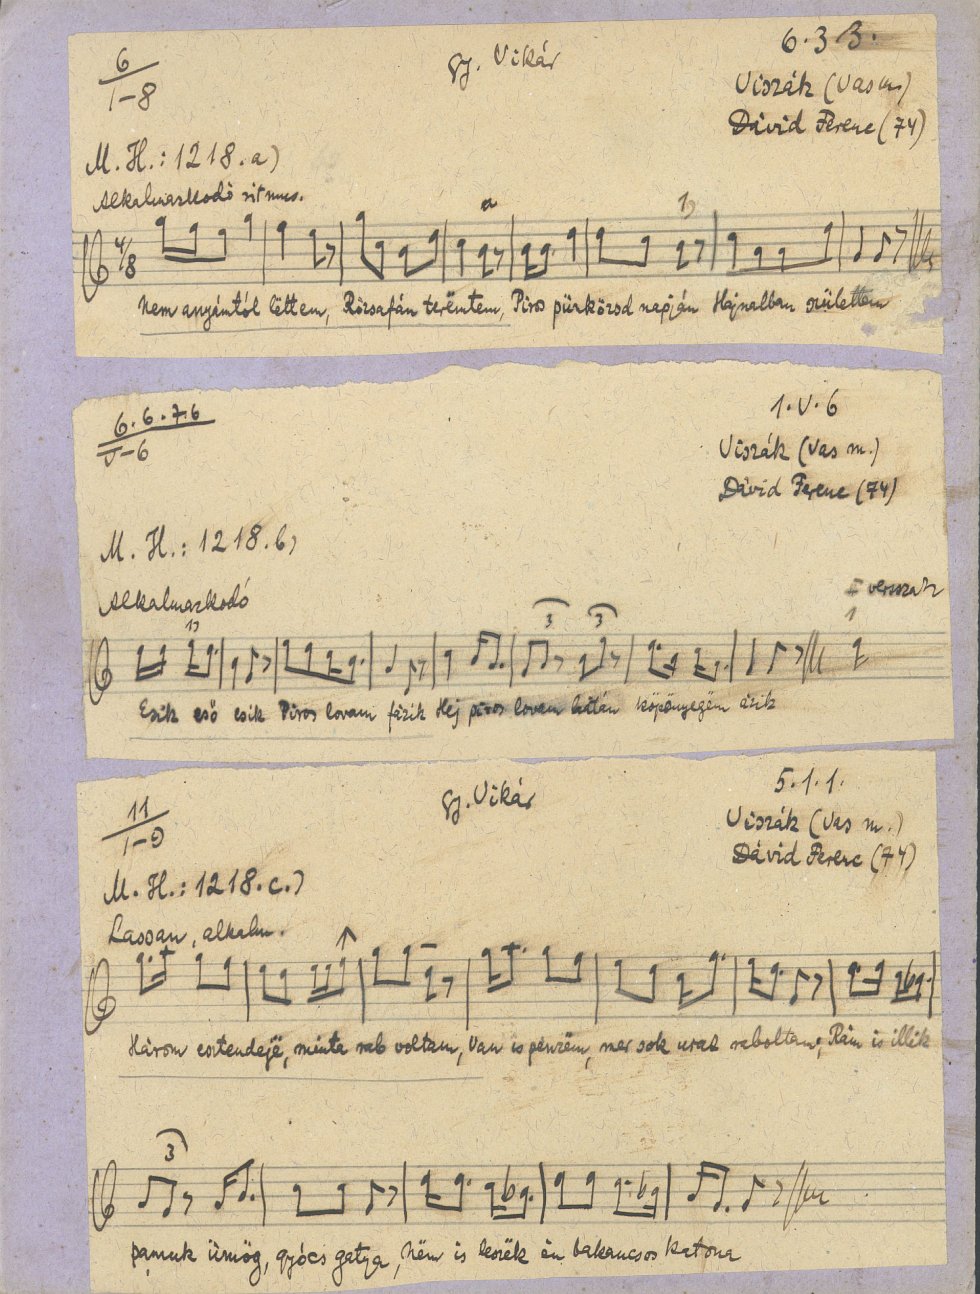 6
1-8
Gy. Vikár
6.3.3.
Viszák (Vas m.)
Dávid Ferenc (74)
M. H.: 1218. a)
Alkalmazkodó ritmus.
4/8
Nem anyámtól löttem, Rózsafán terömtem, Piros pünközsd napján Hajnalban születtem
6.6.7.6
V-6
1.V.6
Viszák (Vas m.)
Dávid Ferenc (74)
M. H.: 1218. b)
Alkalmazkodó
versszak
1)
3
3
1
Esik eső esik Piros lovam fázik Hej piros lovam hátán köpönyegöm ázik
11
1-9
Gy. Vikár
5.1.1.
Viszák (Vas m.)
Dávid Ferenc (74)
M. H.: 1218. c.)
Lassan, alkalm.
Három esztendejé, minta rab voltam, Van is pénzöm, mer sok urat raboltam; Rám is illik
3
pamuk ümög, gyócs gatya, Nëm is leszëk én bakancsos katona